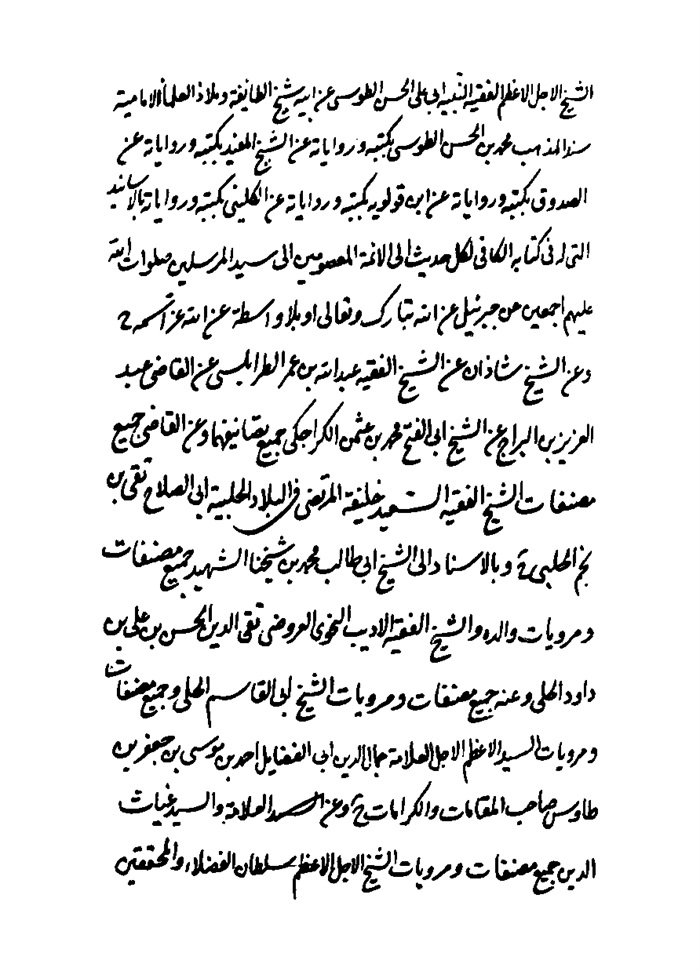 الشيخ الاجل الاعظم الفقيه النبيه ابى على الحسن الطوسى عن ابيه شيخ الطايفة و ملاذ العلماء الامامية
سند المذهب محمد بن الحسن الطوسى بكتبه و رواياته عن الشيخ المفيد بكتبه و رواياته عن
الصدوق بكتبه و رواياته عن ابن قولويه بكتبه و رواياته عن الكلينى بكتبه و رواياته بالاسانيد
التى له فى كتابه الكافى لكل حديث الى الائمة المعصومين الى سيد المرسلين صلوات الله
عليهم اجمعين عن جبرئيل عن الله تبارك و تعالى او بلا واسطة عن الله عز اسمه ح
و عن الشيخ شاذان عن الشيخ الفقيه عبدالله بن عمر الطرابلسى عن القاضى عبد
العزيز بن البراج عن الشيخ ابى الفتح محمد بن عثمن الكراجكى جميع تصانيفهما و عن القاضى جميع
مصنفات الشيخ الفقيه السعيد خليفة المرتضى فى البلاد الحلبية ابى الصلاح تقى بن
نجم الحلبى ره و بالاسناد الى الشيخ ابى طالب محمد بن شيخنا الشهيد جميع مصنفات
و مرويات والده و الشيخ الفقيه الاديب النحوى العروضى تقى الدين الحسن بن على بن
داود الحلى و عنه جميع مصنفات و مرويات الشيخ ابى القاسم الحلى و جميع مصنفات
و مرويات السيد الاعظم الاجل العلامة جمال الدين ابى الفضايل احمد بن موسى بن جعفر بن
طاوس صاحب المقامات والكرامات ح و عن العلامة و السيد غياث
الدين جميع مصنفات و مرويات الشيخ الاجل الاعظم سلطان الفضلاء و المحققين